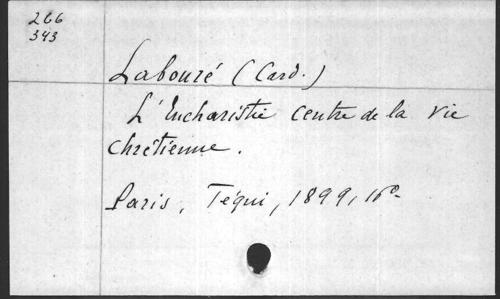 266
343
Labouré (Card.)
L'Eucharistie centre de la vie
chrétienne.
Paris, Téqui, 1899, 16º